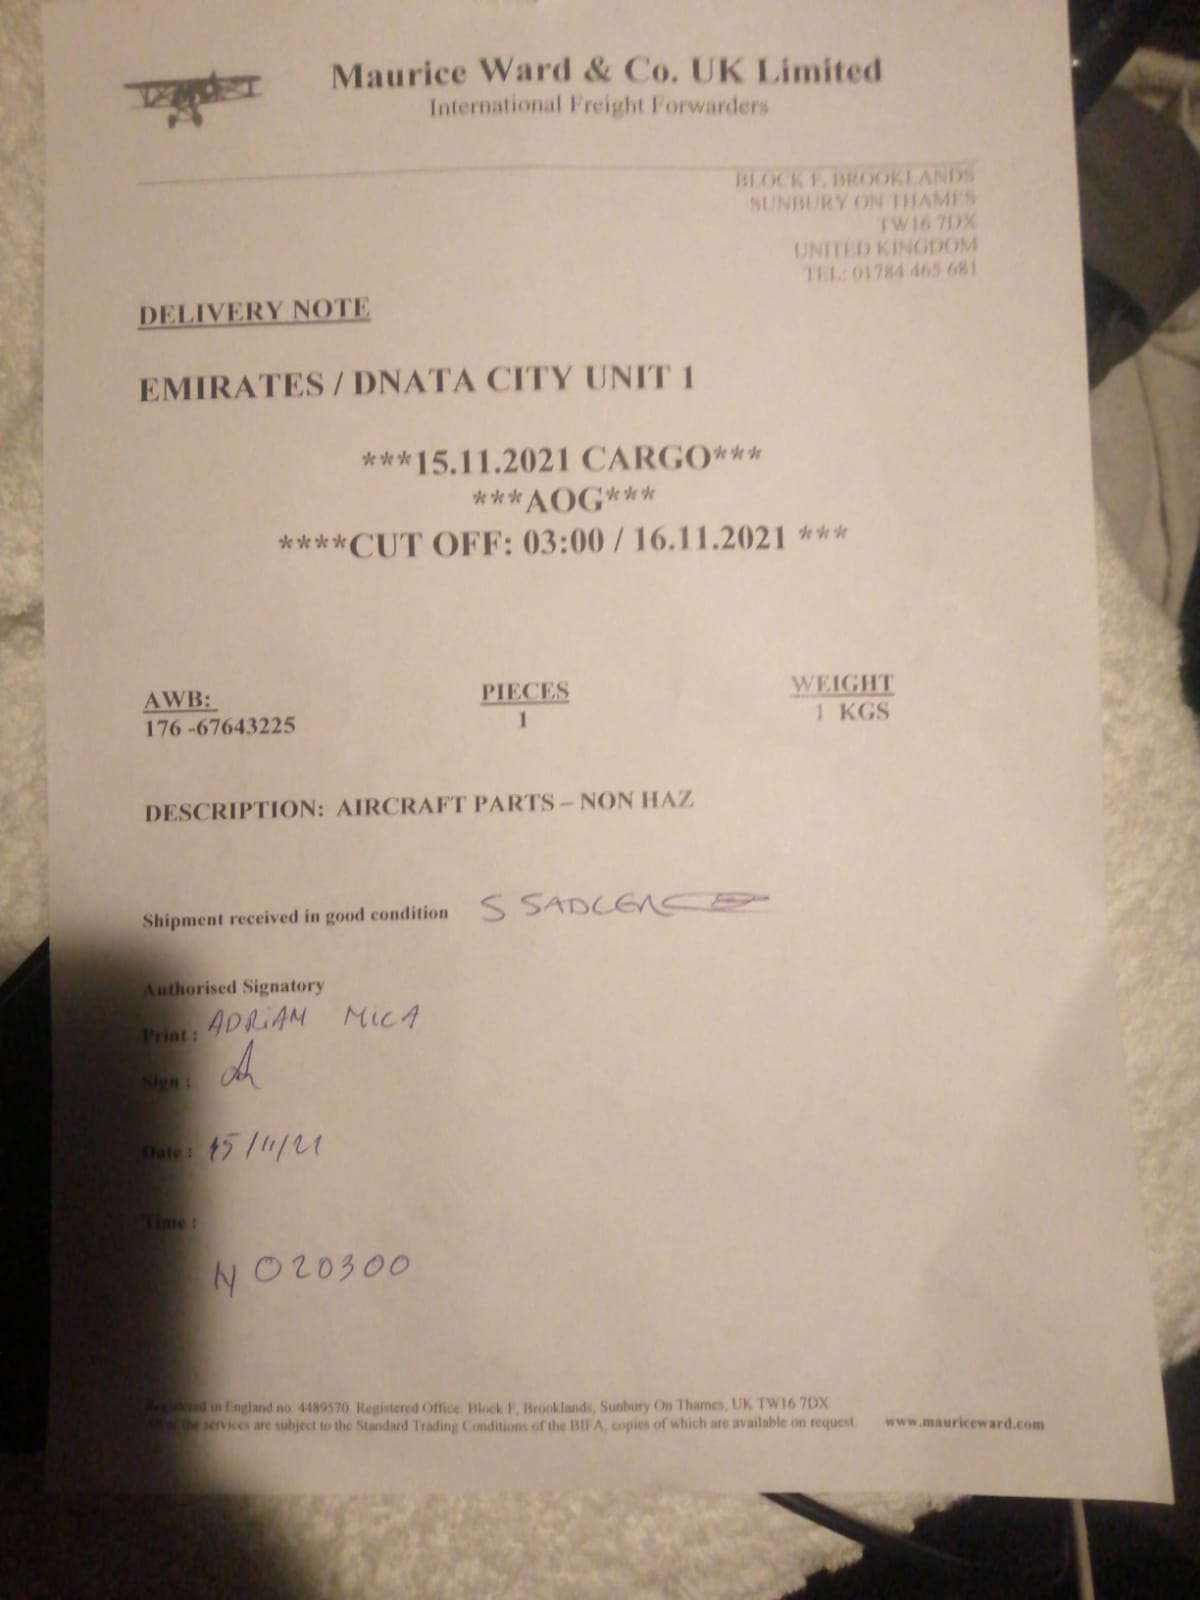 Maurice Ward & Co. UK Limited
International Freight Forwarders
BLOCK F, BROOKLANDS
SUNBURY ON THAMES
TW16 7DX
UNITED KINGDOM
TEL: 01784 465 681
DELIVERY NOTE
EMIRATES / DNATA CITY UNIT 1
***15.11.2021 CARGO***
***AOG***
****CUT OFF: 03:00 / 16.11.2021 ***
AWB: PIECES WEIGHT
176 -67643225 1 1 KGS
DESCRIPTION: AIRCRAFT PARTS – NON HAZ
Shipment received in good condition S SADLER
Authorised Signatory
Print : ADRIAN MICA
Sign :
Date : 15/11/21
Time :
N 020300
Registered in England no. 4489570. Registered Office: Block F, Brooklands, Sunbury On Thames, UK TW16 7DX
All of the services are subject to the Standard Trading Conditions of the BIFA, copies of which are available on request. www.mauriceward.com